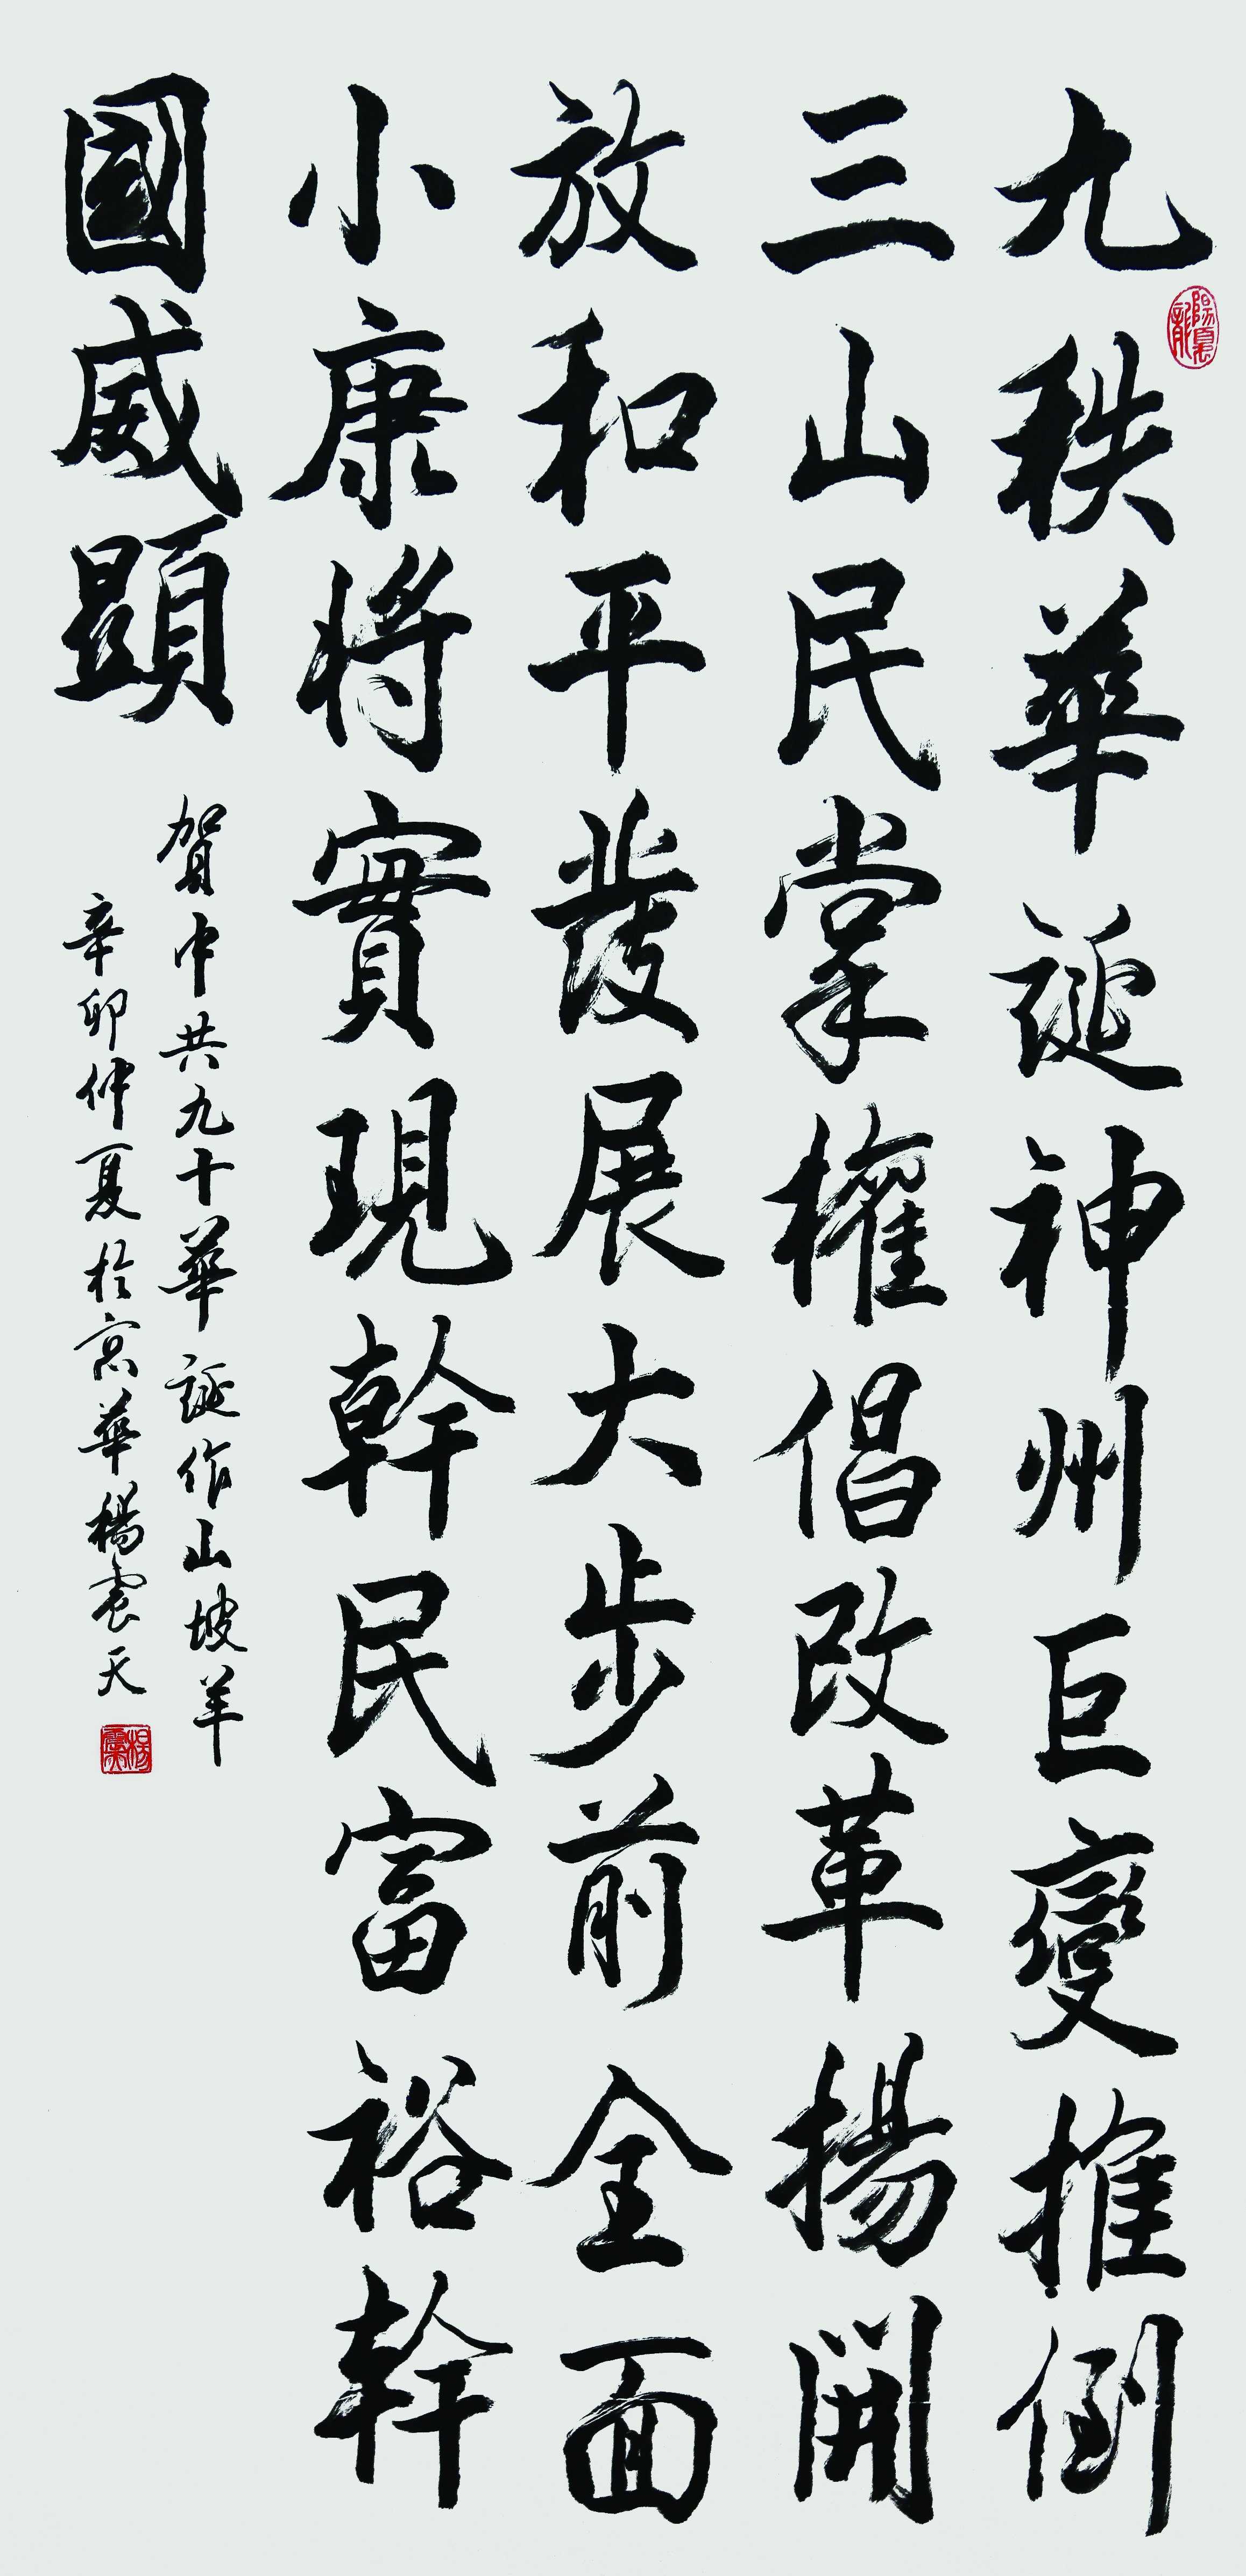 九秩華誕神州巨變推倒
三山民掌權倡改革揚開
放和平發展大步前全面
小康將實現幹民富裕幹
國威顯
賀中共九十華誕作山坡羊
辛卯仲夏於京華楊震天